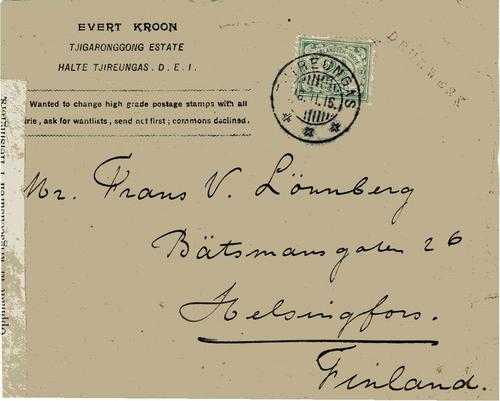 EVERT KROON
TJIGARONGGONG ESTATE
HALTE TJIREUNGAS. D. E. I.
Wanted to change high grade postage stamps with all
rie, ask for wantlists, send not first; commons declined.
TJIREUNGAS
DRUKWERK
Mr. Frans V. Lönnberg
Båtsmansgatan 26
Helsingfors.
Finland.